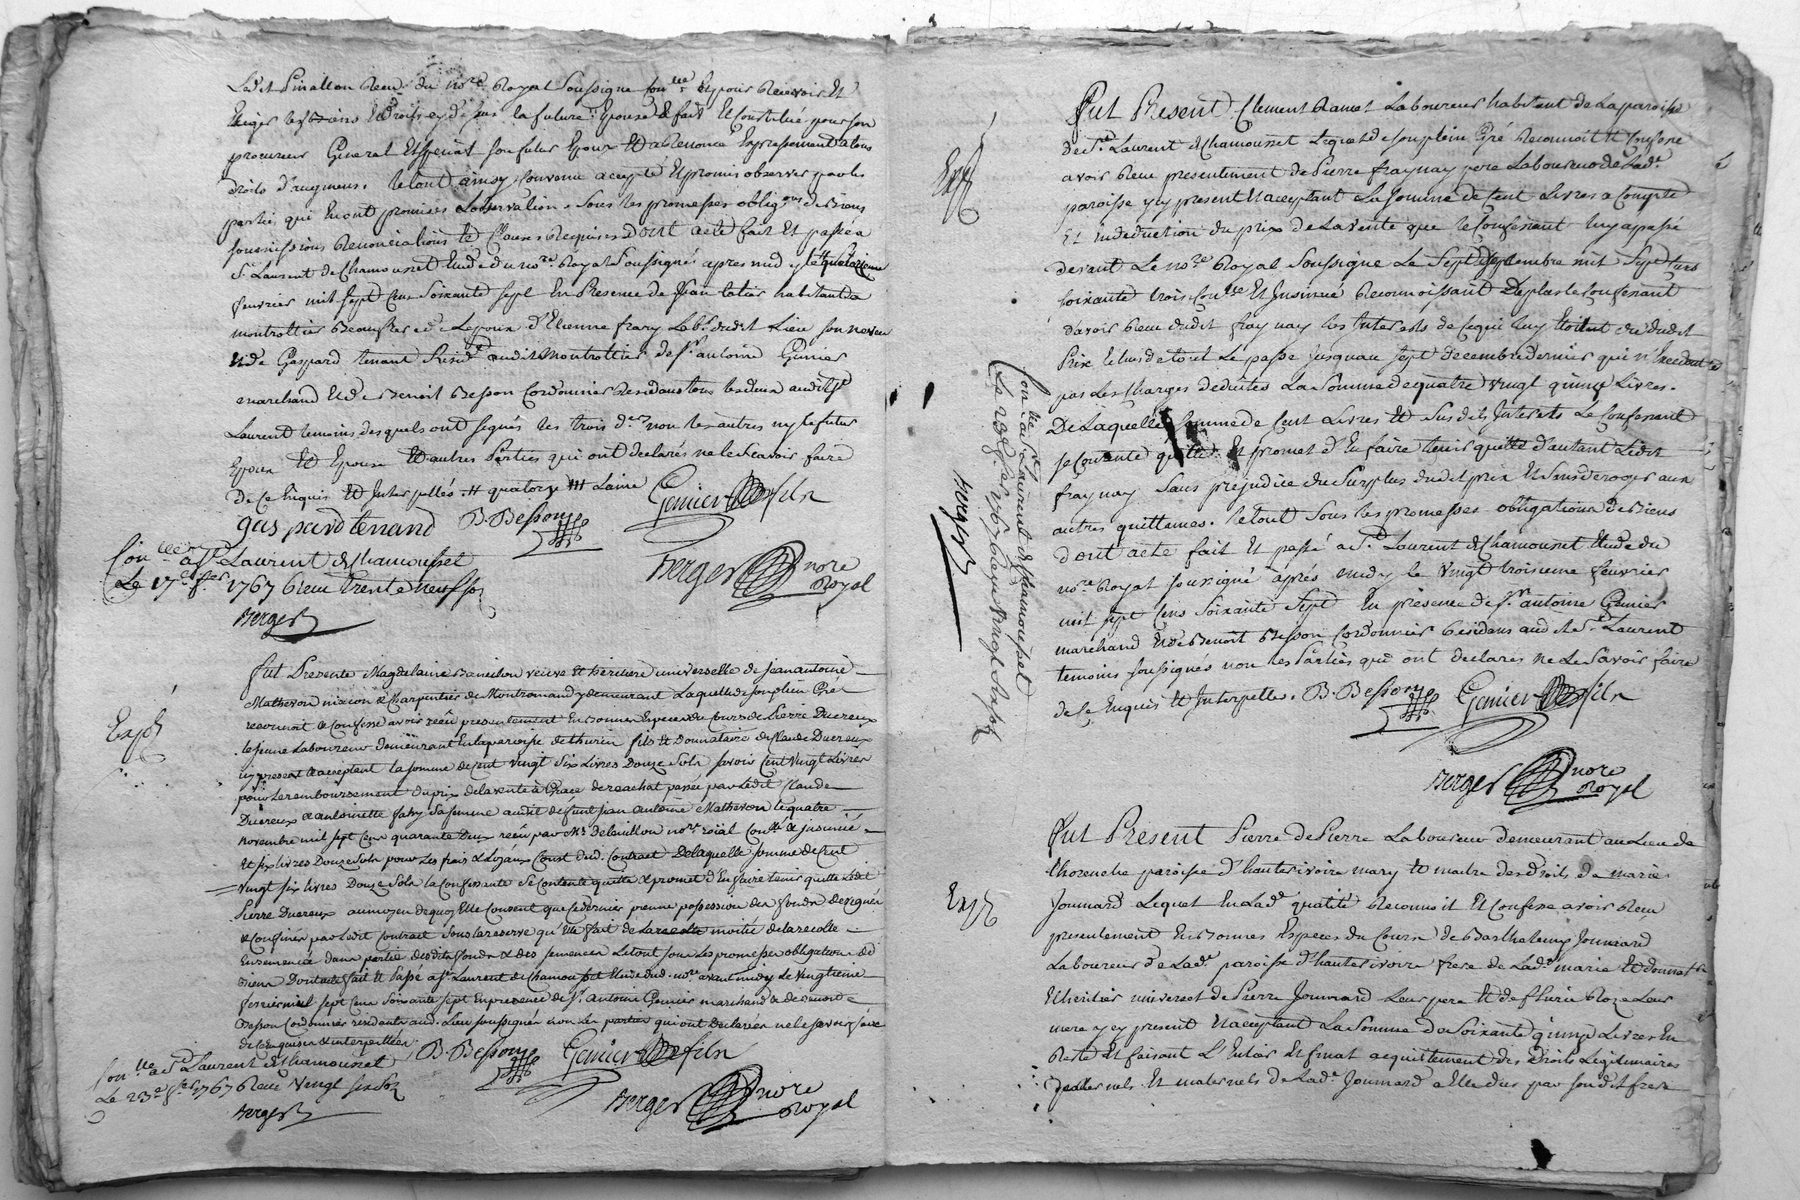 Ledit Pinallon du no.re Royal Soussigné Con.lle Et pour Recevoir Et
Exiger les biens Et droits de la future Epouse Elle fait Et Constitué pour son
procureur General Et special son futur Epoux Et a Renoncé Expressement a tous
droits d'augmens. le tout ainsy convenu accepté Et promis observer par les
parties qui En ont promis L'observation Sous les promesses oblig.ons de Biens
soumissions Renonciations Et Clauses Requises Dont acte fait Et passé a
S.t Laurent de Chamousset Etude du no.re Royal Soussigné apres midy le quatorzieme
fevrier mil sept Cens Soixante sept En Presence de Jean habitant a
montrottier Beaufrere de L'epoux d'Etienne frary Lab.r dudit Lieu son neveu
Et de Gaspard tenant Resid.t audit Montrottier de s.r antoine Genier
marchand Et de Benoit Besson Cordonnier Residans tous les deux audit S.t
Laurent temoins desquels ont signés les trois d.ers non les autres ny le futur
Epoux Et Epouse Et autres Parties qui ont declarés ne le Scavoir faire
De Ce Enquis Et Interpellés. quatorze
gaspard tenand B. Besson Genier fils
Con.lle a S.t Laurent de Chamousset
Le 17.e f.er 1767 Receu trente neuf sols
Berger
Berger nore
Royal
Fut Presente Magdelaine veuve Et heritiere universelle de Jean antoine
Matheron macon & Charpentier de Montromand y demeurant Laquelle de son plein Gré
reconnoit & confesse avoir reçu presentement En bonnes Especes du Cours de Pierre Ducreux
le jeune Laboureur demeurant En la paroisse de thurin fils Et Donnataire de Claude Ducreux
icy present & acceptant la somme de Cent vingt Six Livres Douze Sols savoir Cent Vingt Livres
pour Le remboursement du prix de la vente a Grace de rachat passée par Ledit Claude
Ducreux & antoinette fahy sa femme audit defunt Jean Antoine Matheron le quatre
novembre mil sept Cens quarante Deux reçu par M.e no.re roïal Con.llé & insinué
Et six livres Douze Sols pour Les frais & Loyaux Couts dud. Contract De laquelle somme de Cent
Vingt six livres Douze Sols la Confessante Se Contente quitte & promet d'En faire tenir quitte Ledit
Pierre Ducreux au moyen de quoy Elle Consent que Ce dernier prenne possession des fonds designés
& Confinés par Ledit Contract sous la reserve qu'Elle fait de la recolte moitié de la recolte
Ensemencée dans partie desdits fonds & des semences Le tout sous Les promesses obligations de
biens Dont acte fait & Passé a S.t Laurent de Chamousset Etude dud. no.re avant midy Le vingtieme
fevrier mil sept Cens Soixante sept En presence de S.r Antoine Genier marchand & de Benoit
Besson Cordonnier residants aud. Lieu soussignés non les parties qui ont Declarées ne le savoir faire
de ce Enquises & interpellées
Con.llé a S.t Laurent de Chamousset
Le 23.e f.er 1767 Receu vingt six sols
Berger
B. Besson Genier fils
Berger nore
Royal
Exp.é
Fut Present Clement Ramet Laboureur habitant de La paroisse
de S.t Laurent de Chamousset Lequel de son plein Gré Reconnoit Et Confesse
avoir Receu presentement de Pierre fraynay pere Laboureur de Lad.e
paroisse y cy present Et acceptant La Somme de Cent Livres a Compte
Et En deduction du prix de La vente que le Confessant luy a passé
devant Le no.re Royal Soussigné Le Sept Septembre mil Sept Cens
soixante trois Con.llé Et Insinué Reconnoissant De plus le Confessant
d'avoir Receu dudit fraynay les Interests de Ce qui luy Etoient du dudit
Prix Et de tout Le passé Jusquau sept decembre dernier qui n'Excedent
pas Les Charges deduites La Somme de quatre vingt quinze Livres.
De Laquelle Somme de Cent Livres Et Susdits Interests Le Confessant
se Contente quitte Et promet d'En faire tenir quitte d'autant Ledit
fraynay Sans prejudice du Surplus dudit prix Et Sans deroger aux
autres quittances. Le tout Sous les promesses obligations de Biens
dont acte fait Et passé a S.t Laurent de Chamousset Etude du
no.re Royal soussigné après midy le vingt troisieme fevrier
mil sept Cens Soixante Sept En presence de S.r antoine Genier
marchand Et de Benoit Besson Cordonnier Residans audit S.t Laurent
temoins soussignés non les Parties qui ont declarés ne Le Savoir faire
de Ce Enquis Et Interpellés. B. Besson Genier fils
Berger nore
Royal
Exp.é
Con.llé a S.t Laurent de Chamousset
Le 23.e f.er 1767 Receu Vingt Six sols
Berger
Fut Present Pierre de Pierre Laboureur demeurant au Lieu de
paroisse d'hauterivoire mary Et maitre des droits de marie
Joannard Lequel En Lad.e qualité Reconnoit Et Confesse avoir Receu
presentement En Bonnes Especes du Cours de Barthelemy Joannard
Laboureur de Lad.e paroisse d'hauterivoire frere de Lad.e marie Et donnat.re
Et heritier universel de Pierre Joannard Leur pere Et de fleurie Roze Leur
mere y cy present Et acceptant La Somme de Soixante quinze Livres En
Reste Et faisant L'Entier Et final acquittement des droits Legitimaires
paternels Et maternels de Lad.e Joannard a Elle dus par son dit frere
Exp.é